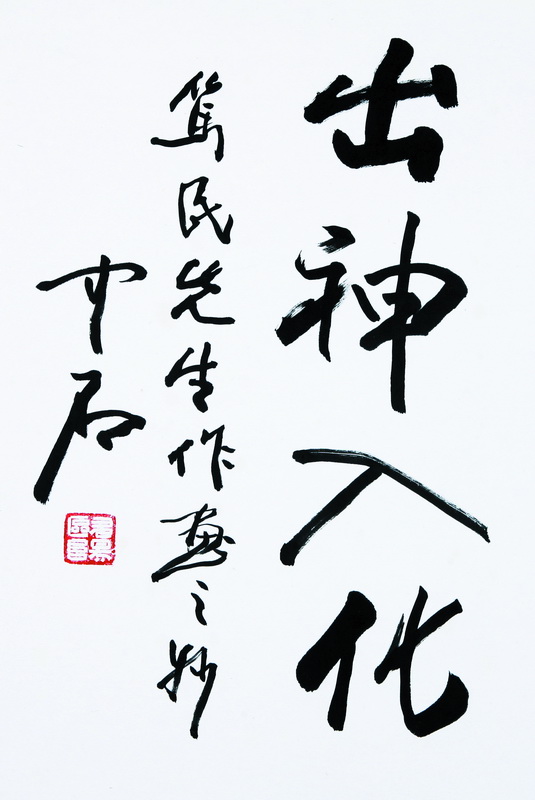 出神入化
笃民先生作画之妙
中石